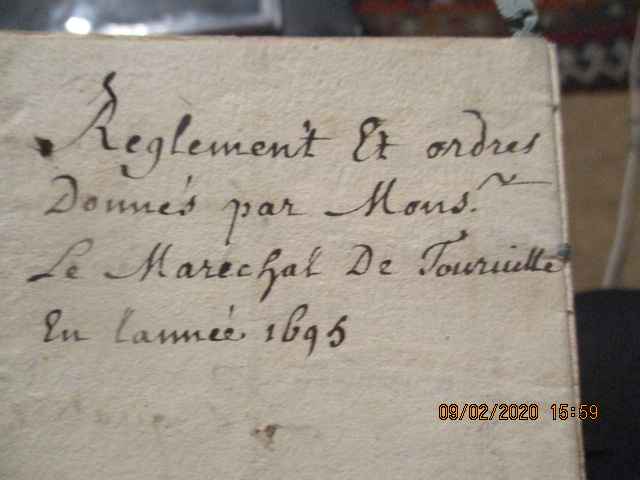 Reglement Et ordres
Donnés par Mons.r
Le Marechal De Tourville
En lannée 1695
09/02/2020 15:59